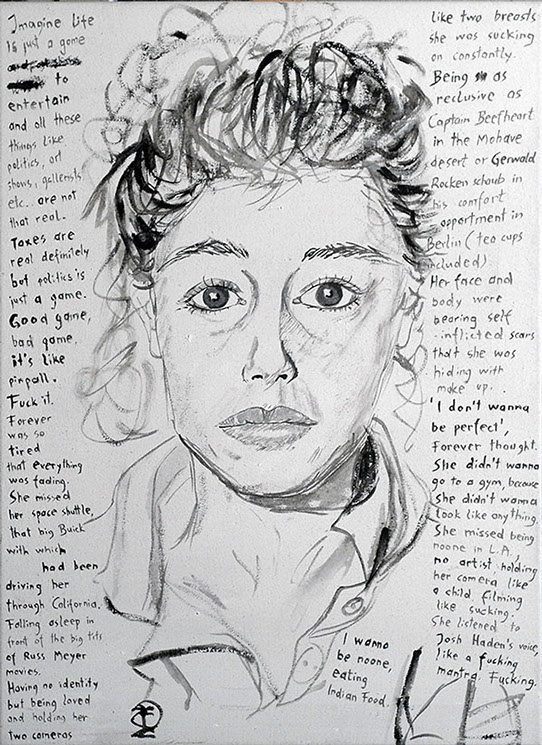 Imagine life
is just a game
to
entertain
and all these
things like
politics, art
shows, gallerists
etc. are not
that real.
Taxes are
real definitely
but politics is
just a game.
Good game,
bad game,
it's like
pinpall.
Fuck it.
Forever
was so
tired
that everything
was fading.
She missed
her space shuttle,
that big Buick
with which
had been
driving her
through California.
Falling asleep in
front of the big tits
of Russ Meyer
movies.
Having no identity
but being loved
and holding her
two cameras
like two breasts
she was sucking
on constantly.
Being as
reclusive as
Captain Beefheart
in the Mohave
desert or Gerwald
Rockenschaub in
his comfort
appartment in
Berlin (tea cups
included)
Her face and
body were
bearing self
inflicted scars
that she was
hiding with
make up.
'I don't wanna
be perfect',
Forever thought.
She didn't wanna
go to a gym, because
she didn't wanna
look like anything.
She missed being
noone in L.A.,
no artist, holding
her camera like
a child, filming
like sucking.
She listened to
Josh Haden's voice,
like a fucking
mantra. Fucking.
I wanna
be noone,
eating
Indian Food.